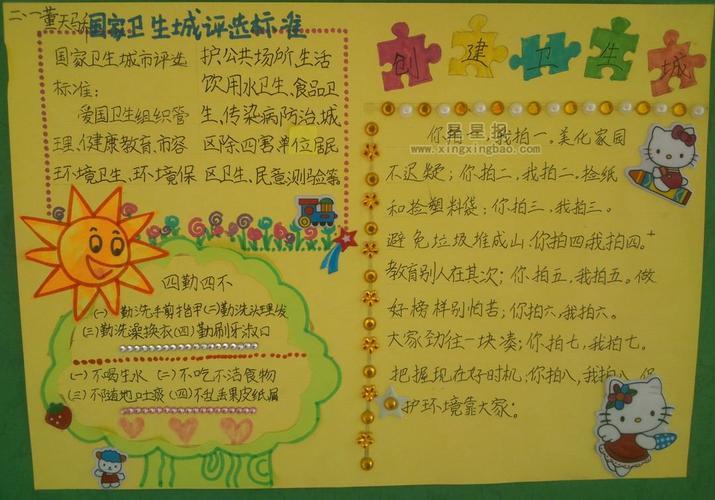 二、一董天马
国家卫生城评选标准
国家卫生城市评选
标准：
爱国卫生组织管
理、健康教育、市容
环境卫生、环境保
护公共场所、生活
饮用水卫生、食品卫
生、传染病防治、城
区除四害、单位居民
区卫生、民意测验等
四勤四不
(一)勤洗手剪指甲(二)勤洗头理发
(三)勤洗澡换衣(四)勤刷牙漱口
(一)不喝生水 (二)不吃不洁食物
(三)不随地吐痰 (四)不乱丢果皮纸屑
创建卫生城
星星报
www.xingxingbao.com
你拍一，我拍一。美化家园
不迟疑；你拍二，我拍二。捡纸
和捡塑料袋；你拍三，我拍三。
避免垃圾堆成山；你拍四，我拍四。
教育别人在其次；你拍五，我拍五。做
好榜样别怕苦；你拍六，我拍六。
大家劲往一块凑；你拍七，我拍七。
把握现在好时机；你拍八，我拍八，保
护环境靠大家。